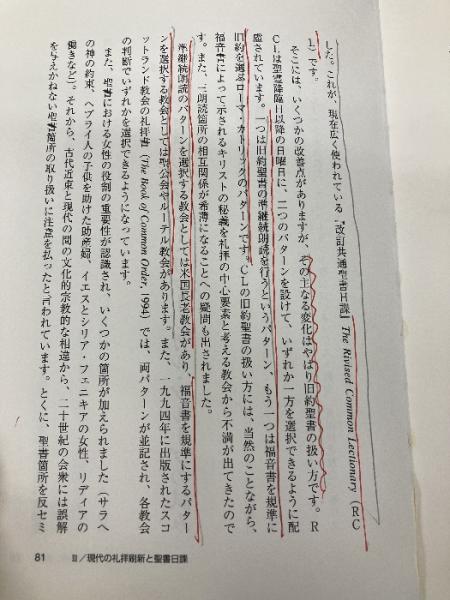 した。これが、現在広く使われている『改訂共通聖書日課』The Rivised Common Lectionary（RC
L）です。
そこには、いくつかの改善点がありますが、その主なる変化はやはり旧約聖書の扱い方です。R
CLは聖霊降臨日以降の日曜日に、二つのパターンを設けて、いずれか一方を選択できるように配
慮されています。一つは旧約聖書の準継続朗読を行うというパターン、もう一つは福音書を規準に
旧約を選ぶローマ・カトリックのパターンです。CLの旧約聖書の扱い方には、当然のことながら、
福音書によって示されるキリストの秘義を礼拝の中心要素と考える教会から不満が出てきたので
す。また、三朗読箇所の相互関係が希薄になることへの疑問も出されました。
準継続朗読のパターンを選択する教会としては米国長老教会があり、福音書を規準にするパター
ンを選択する教会としては聖公会やルーテル教会があります。また、一九九四年に出版されたスコ
ットランド教会の礼拝書（The Book of Common Order, 1994）では、両パターンが並記され、各教会
の判断でいずれかを選択できるようになっています。
また、聖書における女性の役割の重要性が認識され、いくつかの箇所が加えられました（サラへ
の神の約束、ヘブライ人の子供を助けた助産婦、イエスとシリア・フェニキアの女性、リディアの
働きなど）。それから、古代近東と現代の間の文化的宗教的な相違から、二十世紀の会衆には誤解
を与えかねない聖書箇所の取り扱いに注意を払ったと言われています。とくに、聖書箇所を反セミ
81 Ⅱ／現代の礼拝刷新と聖書日課